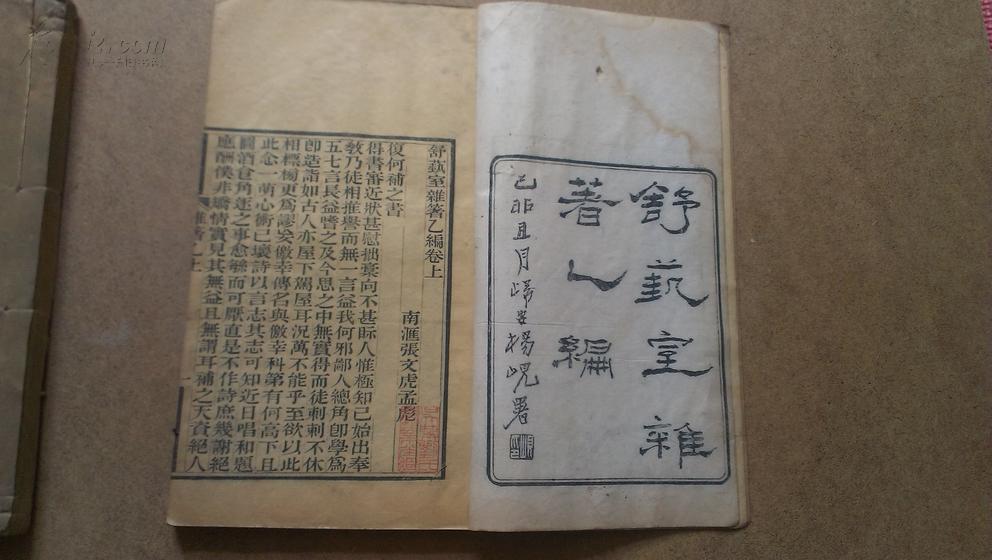 舒藝室雜
著乙編
己卯且月歸安楊峴署
舒蓺室雜著乙編卷上
南滙張文虎孟彪
復何補之書
得書審近狀甚慰拙稾向不甚眎人惟極知己始出奉
敎乃徒相推譽而無一言益我何邪鄙人總角卽學爲
五七言長益嗜之及今思之中無實得而徒剌剌不休
卽造詣如古人亦屋下駕屋耳況萬不能乎至欲以此
相標榜更爲謬矣徼幸傳名與徼幸科第有何高下且
此念一萌心術已壞詩以言志其志可知近日唱和題
圖酒食角逐之事愈緐而可厭直是不作詩庶幾謝絕
應酬僕非矯情實見其無益且無謂耳補之天資絕人
雜著乙上
一